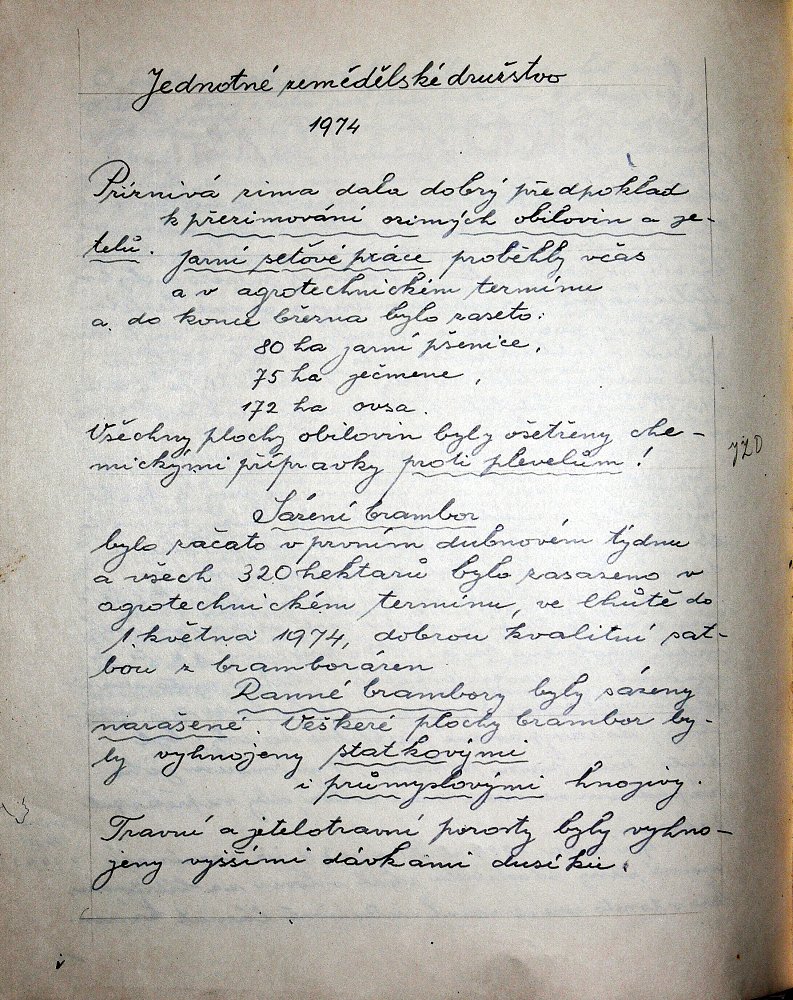 Jednotné zemědělské družstvo
1974
Příznivá zima dala dobrý předpoklad
k přezimování ozimých obilovin a je-
telů. Jarní seťové práce proběhly včas
a v agrotechnickém termínu
a do konce března bylo zaseto:
80 ha jarní pšenice,
75 ha ječmene,
172 ha ovsa.
Všechny plochy obilovin byly ošetřeny che-
mickými přípravky proti plevelům!
JZD
Sázení brambor
bylo začato v prvním dubnovém týdnu
a všech 320 hektarů bylo zasazeno v
agrotechnickém termínu, ve lhůtě do
1 května 1974, dobrou kvalitní sat-
bou z bramboráren
Ranné brambory byly sázeny
narašené. Veškeré plochy brambor by-
ly vyhnojeny statkovými
i průmyslovými hnojivy.
Travní a jetelotravní porosty byly vyhno-
jeny vyššími dávkami dusíku.